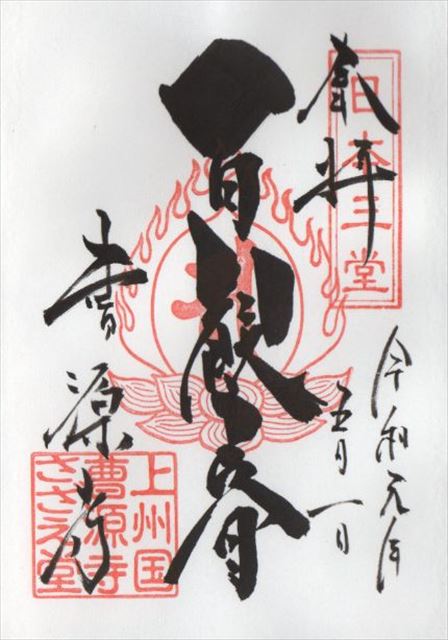 奉拝
日本三堂
令和元年
五月一日
百観音
曹源寺
上州国
曹源寺
さざえ堂